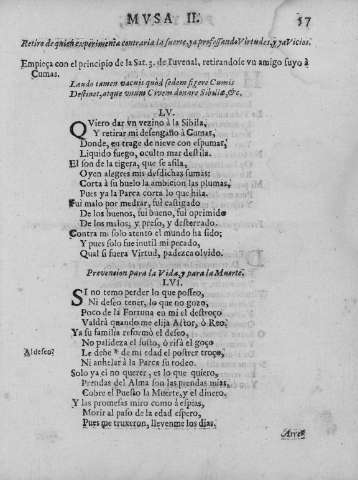 MVSA II. 57
Retiro de quien experimenta contraria la suerte, ya professando Virtudes, y ya Vicios.
Empieça con el principio de la Sat. 3. de Iuvenal, retirandose vn amigo suyo à
Cumas.
Laudo tamen vacuis quòd sedem figere Cumis
Destinet, atque vnum Civem donare Sibillæ, &c.
LV.
QViero dar vn vezino à la Sibila,
Y retirar mi desengaño à Cumas,
Donde, en trage de nieve con espumas,
Liquido fuego, oculto mar destila.
El son de la tigera, que se afila,
Oyen alegres mis desdichas sumas;
Corta à su buelo la ambicion las plumas,
Pues ya la Parca corta lo que hila.
Fui malo por medrar, fui castigado
De los buenos, fui bueno, fui oprimido
De los malos; y preso, y desterrado.
Contra mi solo atento el mundo ha sido;
Y pues solo fue inutil mi pecado,
Qual si fuera Virtud, padezca olvido.
Prevencion para la Vida, y para la Muerte.
LVI.
SI no temo perder lo que posseo,
Ni deseo tener, lo que no gozo,
Poco de la Fortuna en mi el destroço
Valdrà quando me elija Actor, ò Reo.
Ya su familia reformò el deseo,
No palidez a el susto, ò risa el goço
Al deseo? Le debe * de mi edad el postrer troço,
Ni anhelar à la Parca su rodeo.
Solo ya el no querer, es lo que quiero,
Prendas del Alma son las prendas mias,
Cobre el Puesto la Muerte, y el dinero,
Y las promesas miro como à espias,
Morir al paso de la edad espero,
Pues me truxeron, llevenme los dias.